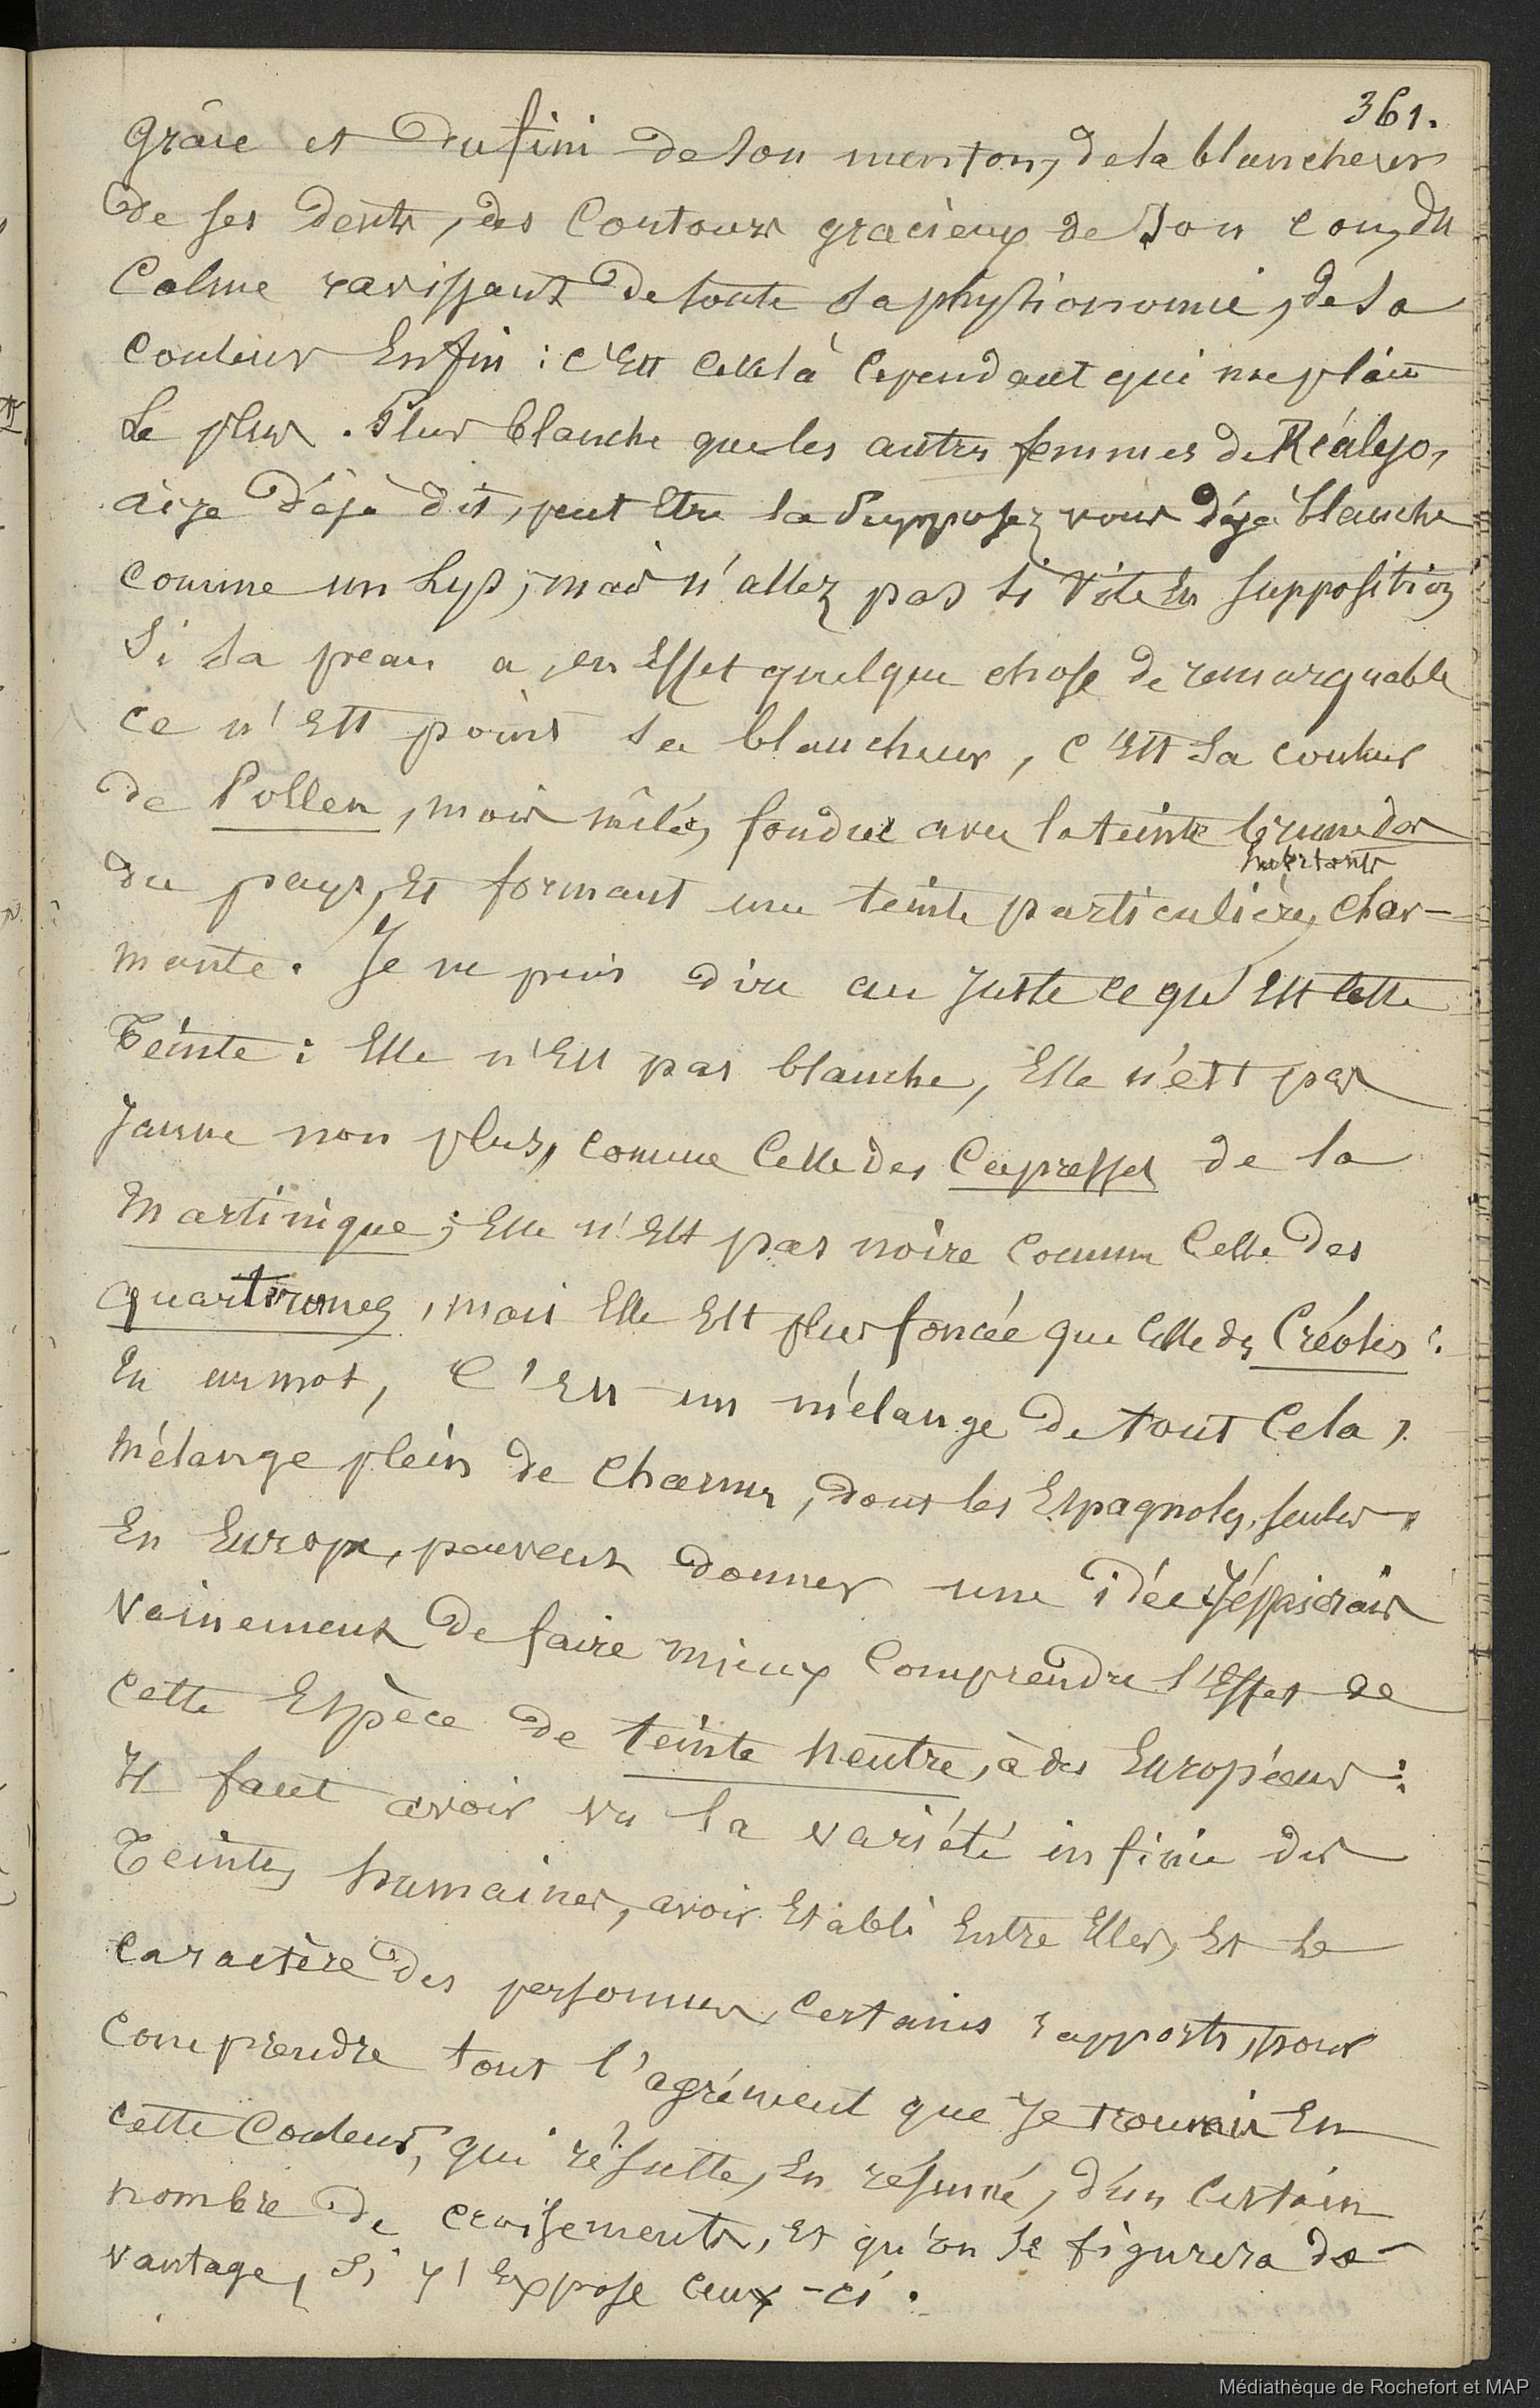 361.
grâce et du fini de son menton, de la blancheur
de ses dents, des Contours gracieux de son cou, du
Calme ravissant de toute sa physionomie, de sa
Couleur Enfin : c'Est Celle là Cependant qui me plait
Le plus. Plus blanche que les autres femmes de Réalejo,
ai-je déjà dit, peut Etre la Supposez vous déjà blanche
comme un Lys; mais n'allez pas si vite En supposition
Si sa peau a, en Effet quelque chose de remarquable
Ce n'Est point sa blancheur, c'Est sa couleur
de Pollen, mais mêlée, fondue avec la teinte brune des
habitants
du pays, Et formant une teinte particulière, Char-
mante. Je ne puis dire au Juste ce qu'Est Cette
Teinte : Elle n'Est pas blanche, Elle n'est pas
Jaune non plus, comme Celle des Capresses de la
Martinique; Elle n'Est pas noire Comme Celle des
quarteronnes, mais Elle Est plus foncée que Celle des Créoles :
En un mot, C'Est un mélange de tout Cela,
Mélange plein de Charmes, dont les Espagnoles, seules,
En Europe, peuvent donner une idée. J'éssaierais
Vainement de faire mieux Comprendre l'Effet de
Cette Espèce de teinte neutre, à des Européens :
Il faut avoir vu la variété infinie des
Teintes humaines, avoir Etabli Entre Elles, Et le
Caractère des personnes, Certains rapports, pour
Comprendre tout l'agrément que Je trouvais En
cette Couleur, qui résulte, En résumé, d'un Certain
nombre de croisements, Et qu'on se figurera da-
vantage, Si j'Expose ceux-ci.
Médiathèque de Rochefort et MAP